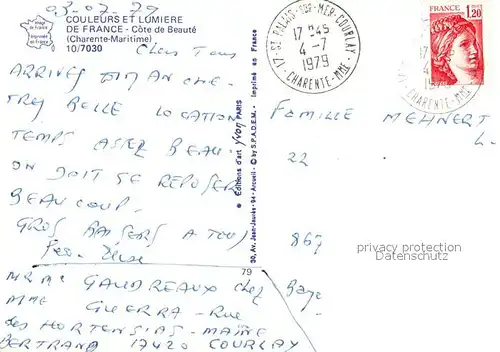 03-07-79
COULEURS ET LUMIERE
DE FRANCE - Côte de Beauté
(Charente-Maritime)
10/7030
Chers Tous
ARRIVÉS DIMANCHE -
TRES BELLE LOCATION
TEMPS ASSEZ BEAU.
ON DOIT SE REPOSER
BEAUCOUP.
GROS BAISERS A TOUS
MR Me GAUDREAUX chez
MME GUERRA - Rue
des HORTENSIAS - MAINE
BERTRAND 17420 COURLAY
79
Editions d'art yvon PARIS
30, Av. Jean-Jaurès - 94 - Arcueil - © by S.P.A.D.E.M. - Imprimé en France
17-ST PALAIS-SUR-MER-COURLAY
17 H-45
4-7
1979
CHARENTE-MME
FRANCE
1,20
FAMILLE MEHNERT
22
867
privacy protection
Datenschutz